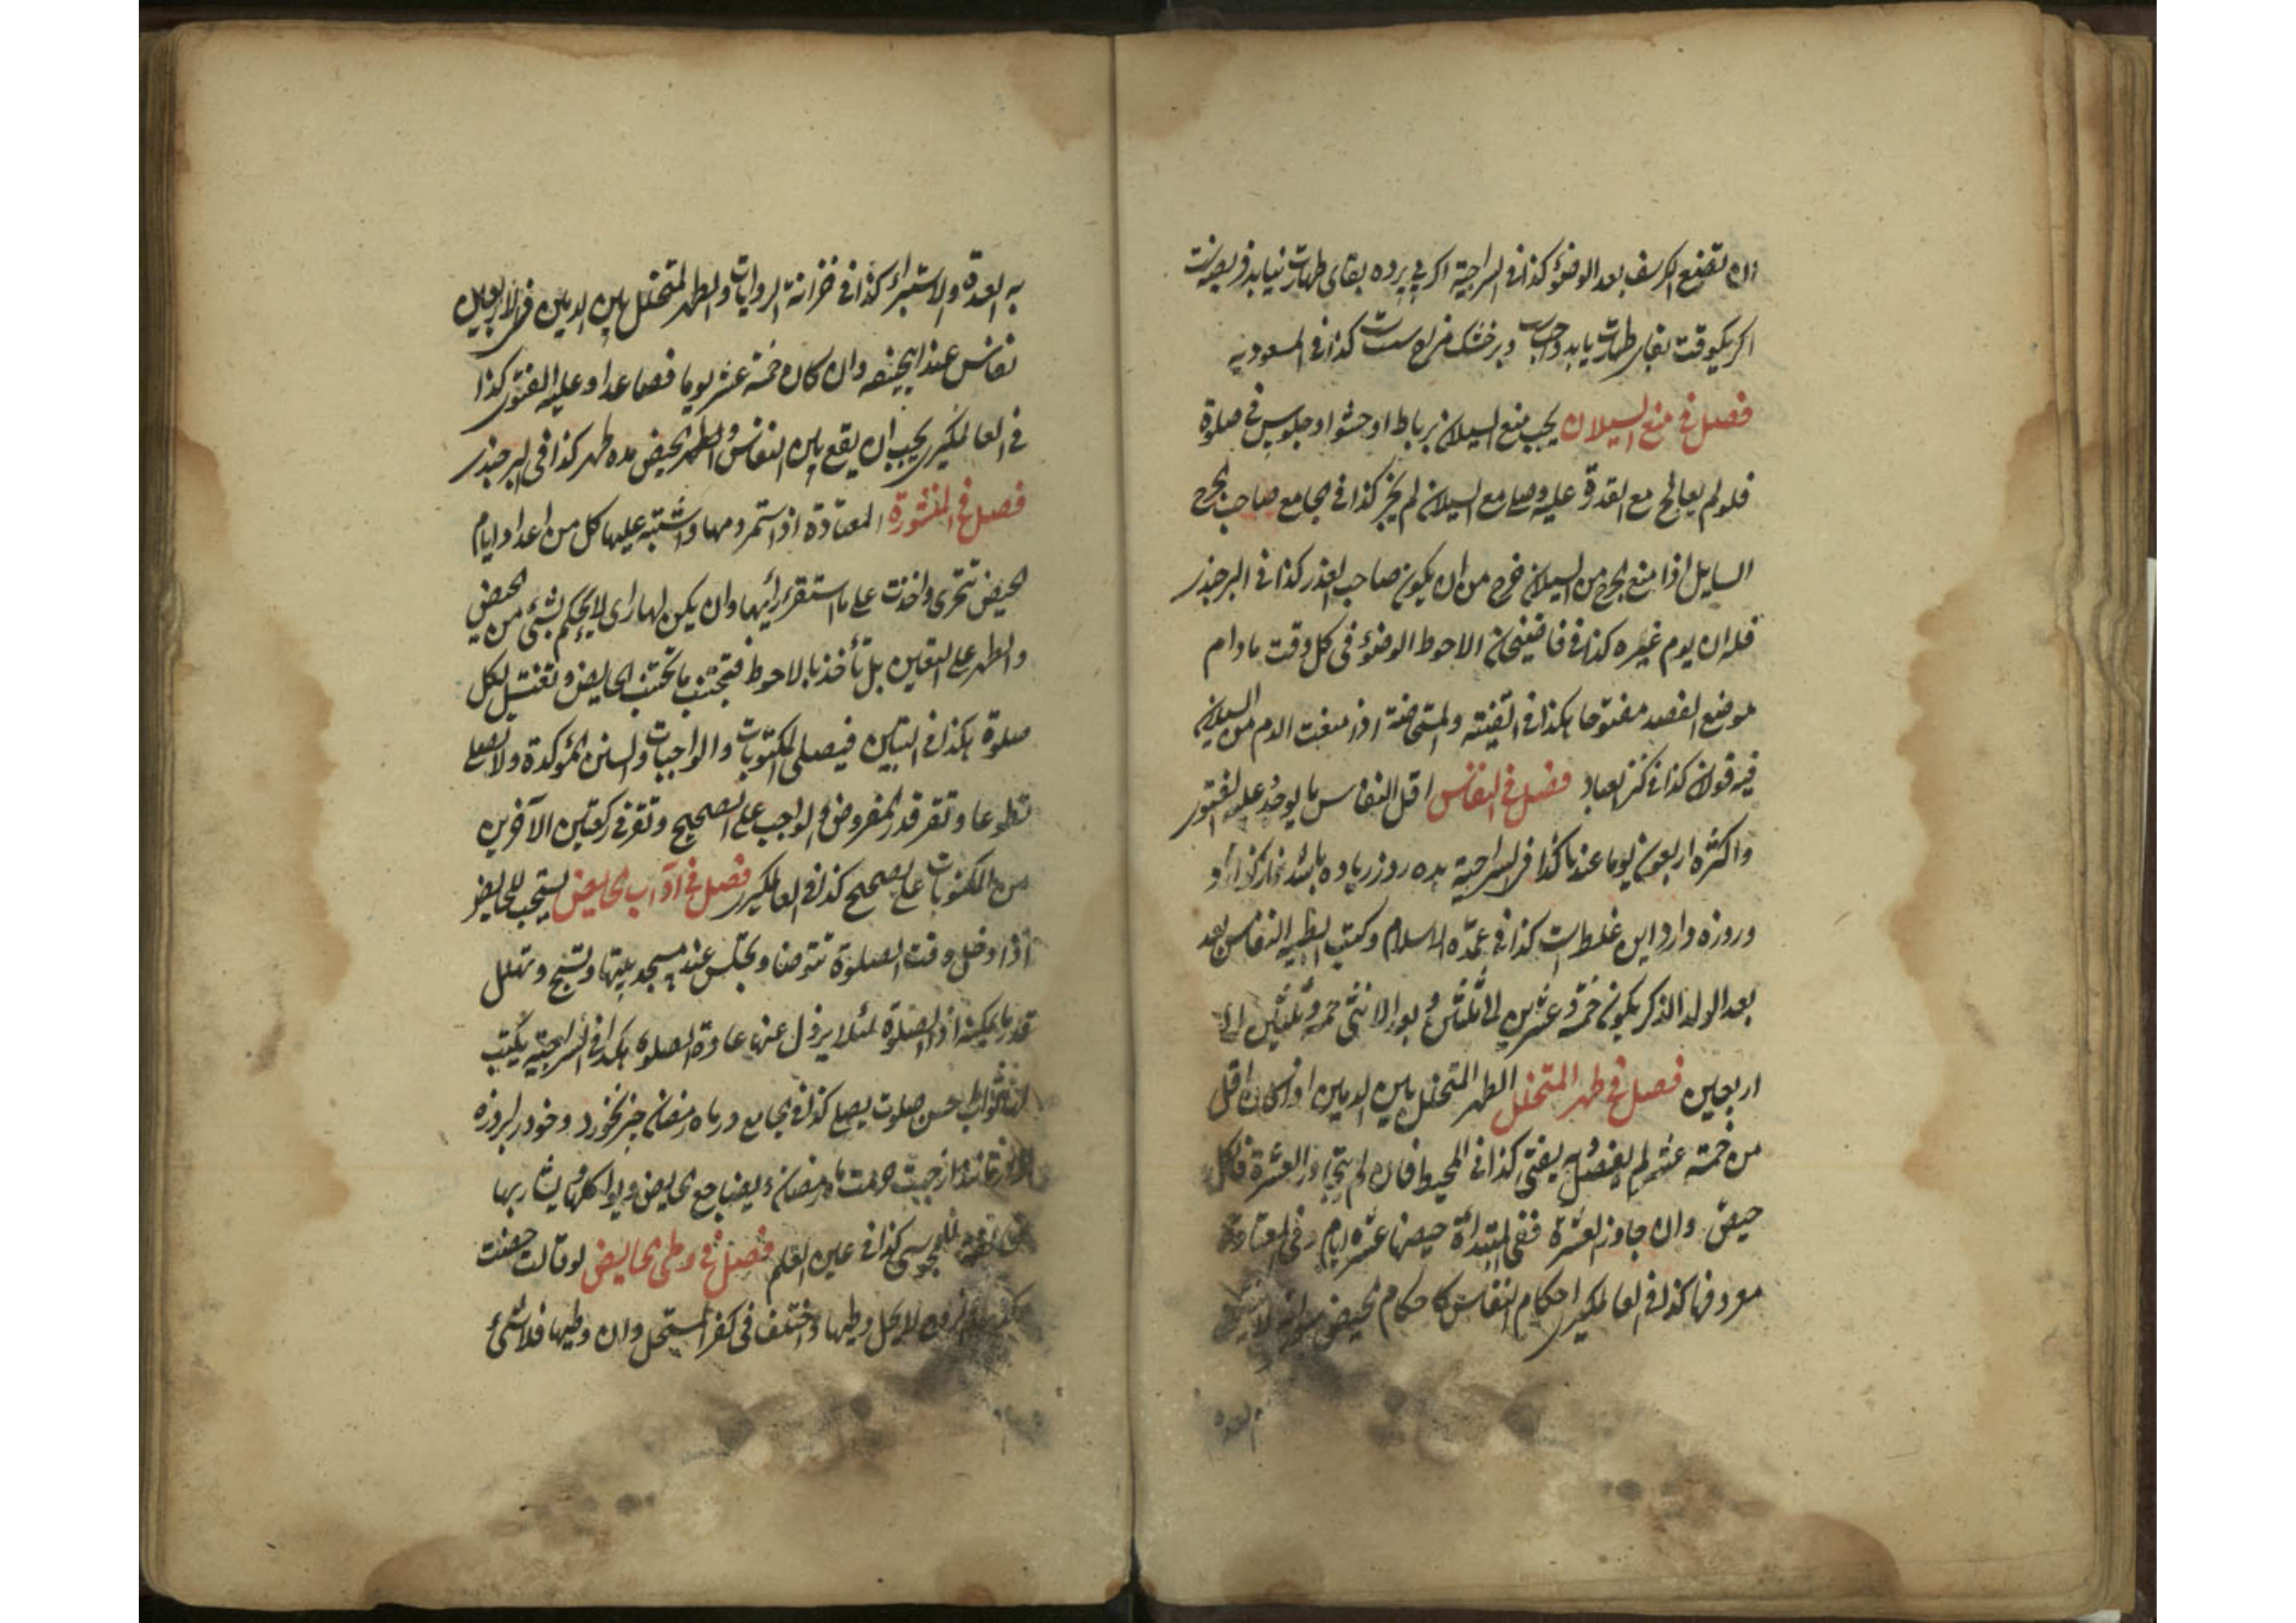 ان تضع الكرسف بعد الوضوء كذا فى السراجية اكر پى پرده بقاى طهارت نيابد فريضه نيست
اكر يكوقت بقاى طهارت يابد واجب وبر خشك فرض است كذا فى المسعوديه
فصل فى منع السيلان يجب منع السيلان برباط او حشو او جلوس فى صلوة
فلو لم يعالج مع القدرة عليه وصلى مع السيلان لم يجز كذا فى الجامع صاحب الجرح
السايل اذا منع الجرح من السيلان خرج من ان يكون صاحب العذر كذا فى البرجندى
فله ان يوم غيره كذا فى قاضيخان الاحوط الوضوء فى كل وقت مادام
موضع الفصد مفتوحا هكذا فى القنية والمستحاضة اذا منعت الدم من السيلان
فيه قولان كذا فى كنز العباد فصل فى النفاس اقل النفاس ما يوجد وعليه الفتوى
واكثره اربعون يوما عندنا كذا فى السراجية ده روز زياده باشد نماز كذارد و
وروزه دارد اين غلط است كذا فى عمدة الاسلام وكتب الطبية النفاس بعد
بعد الولد الذكر يكون خمسة وعشرين الى ثلثين وبعد الانثى خمسة وثلثين الى
اربعين فصل فى طهر المتخلل الطهر المتخلل بين الدمين اذا كان اقل
من خمسة عشر لم يفصل به يفتى كذا فى المحيط فان لم يتجاوز العشرة فالكل
حيض وان جاوز العشرة ففى المبتدأة حيضها عشرة ايام وفى المعتادة
معروفها كذا فى العالمكيرى احكام النفاس كاحكام الحيض سوى انه لا
العدة
به العدة والاستبراء كذا فى خزانة الروايات والطهر المتخلل بين الدمين فى الاربعين
نفاس عند ابيحنيفه وان كان خمسة عشر يوما فصاعدا وعليه الفتوى كذا
فى العالمكيرى يجب ان يقع بين النفاس والطهر الحيض مدة طهر كذا فى البرجندى
فصل فى المنشورة المعتادة اذا استمر دمها واشتبه عليها كل من اعداد ايام
الحيض تتحرى واخذت على ما استقر رأيها وان يكن لها راى لا يحكم بشئ من الحيض
والطهر على اليقين بل تأخذ بالاحوط فتجتنب ما تجتنب الحايض وتغتسل لكل
صلوة هكذا فى التبيين فيصلى المكتوبات والواجبات والسنن المؤكدة ولا تصلى
تطوعا وتقرء قدر المفروض والواجب على الصحيح وتقرء فى ركعتين الآخرين
من المكتوبات على الصحيح كذا فى العالمكيرى فصل فى آداب الحايض يستحب للحايض
اذا دخل وقت الصلوة تتوضا وتجلس عند مسجد بيتها وتسبح وتهلل
قدر ما يمكنها اداء الصلوة لئلا يزول عنها عادة الصلوة هكذا فى السراجية يكتب
لها ثواب احسن صلوت يصلى كذا فى الجامع در ماه رمضان چيز نخورد وخود را بروزه
ماه رمضان ويضاجع الحايض ويواكلها ويشاربها
كذا فى عين العلم فصل فى وطى الحايض لو قالت حضت
لا يحل وطيها واختلف فى كفر المستحل وان وطيها فلا شئ